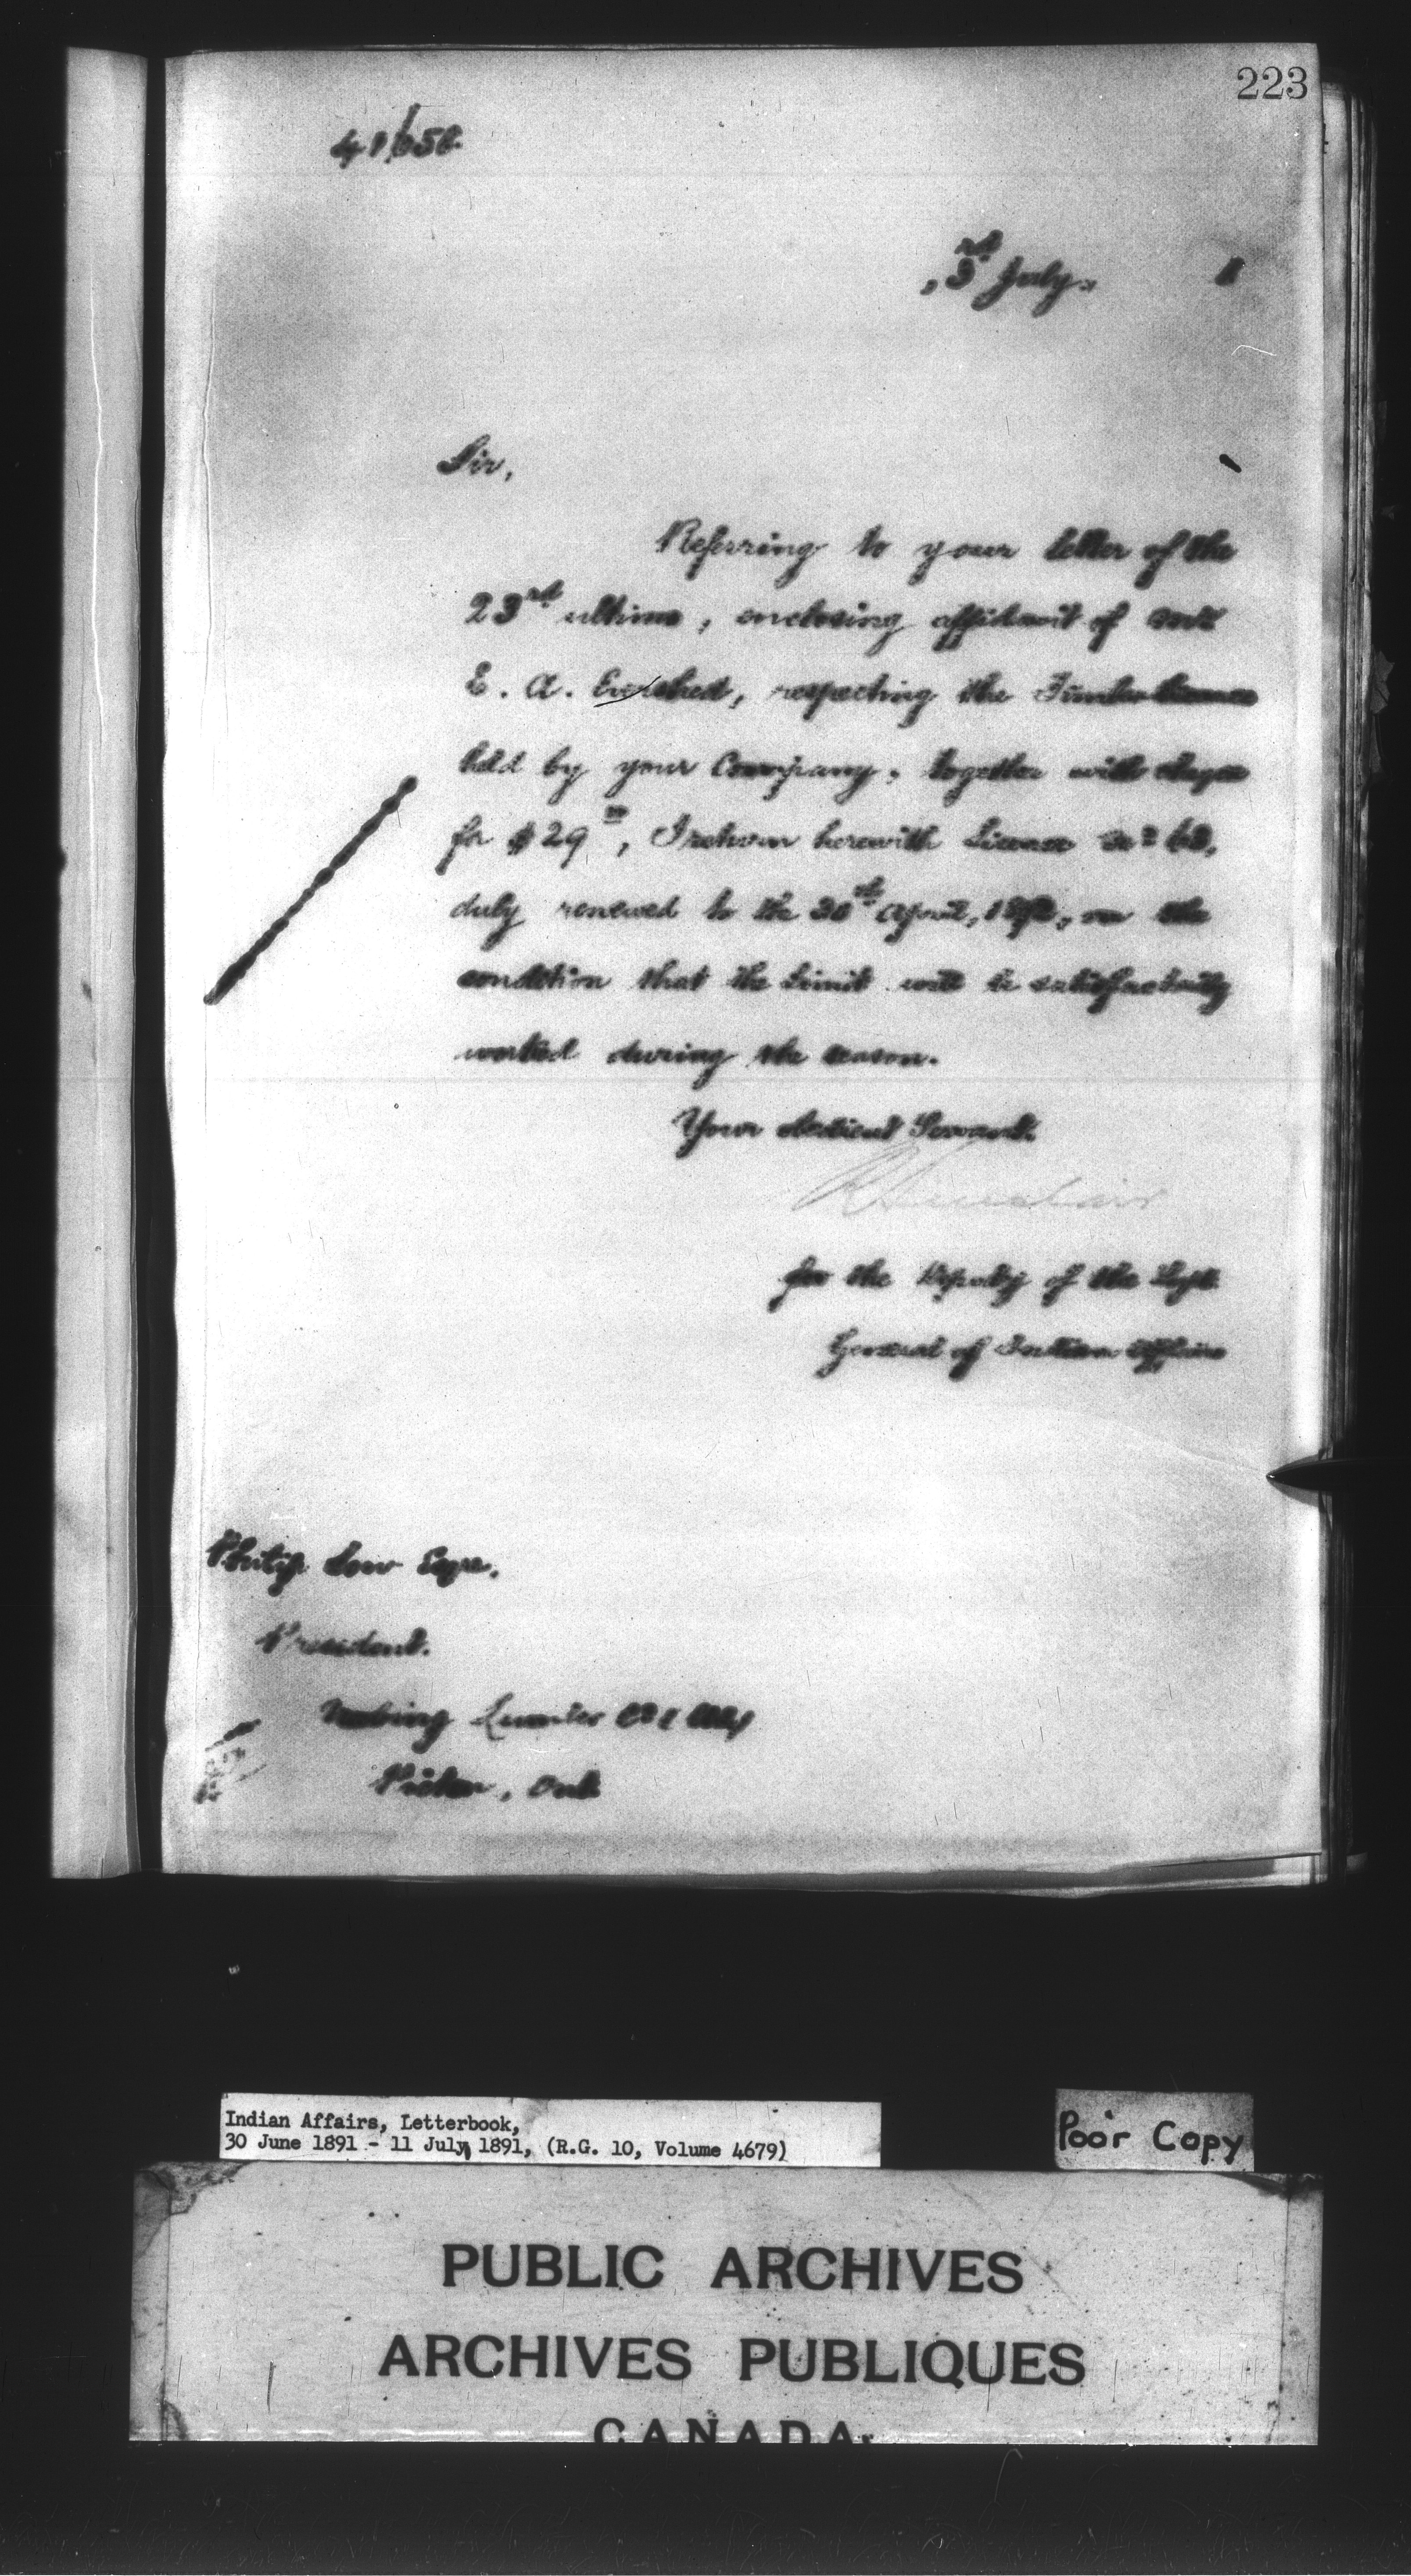 223
3rd July, 1
Sir,
Referring to your letter of the
23rd ultimo, enclosing affidavit of Mr
E. A. Evershed, respecting the Timber license
held by your Company, together with cheque
for $29 00, I return herewith License No 63,
duly renewed to the 30th April, 1892, on the
condition that the Limit will be satisfactorily
worked during the season.
Your obedient Servant.
R Sinclair
for the Deputy of the Supt.
General of Indian Affairs
Philip Low Esqre.
President.
Lumber Co
Picton, Ont
Indian Affairs, Letterbook,
30 June 1891 - 11 July 1891, (R.G. 10, Volume 4679)
Poor Copy
PUBLIC ARCHIVES
ARCHIVES PUBLIQUES
CANADA